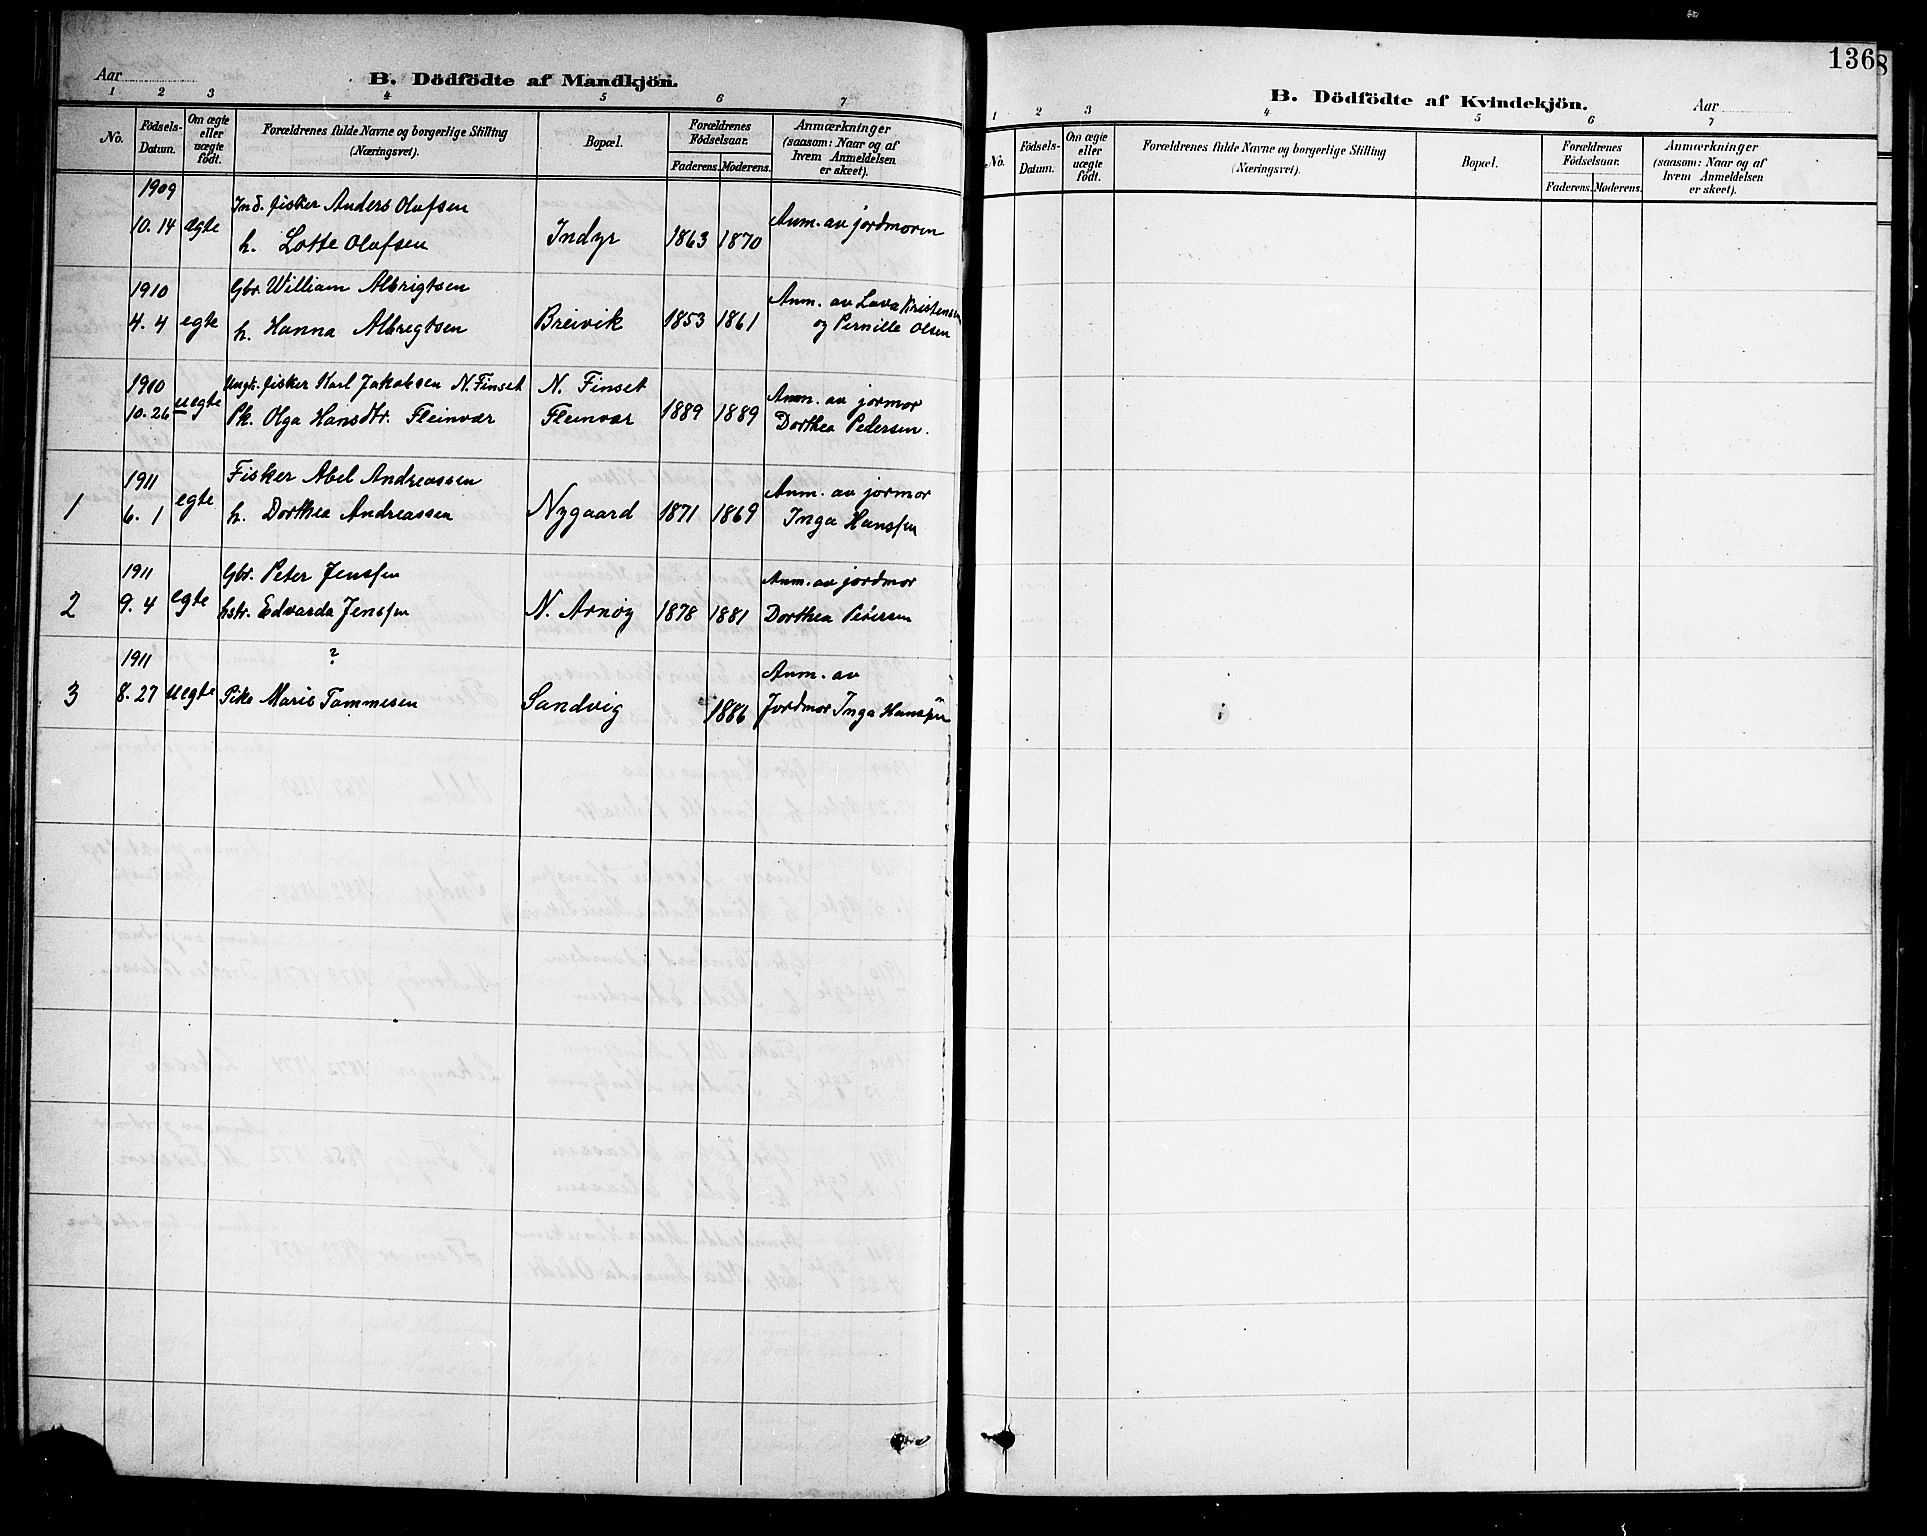 Aar
B. Dödfödte af Mandkjön.
1 2 3 4 5 6 7
No.
Födsels-
Datum.
Om ægte
eller
uægte
født.
Forældrenes fulde Navne og borgerlige Stilling
(Næringsvei).
Bopæl.
Forældrenes
Födselsaar.
Faderens. Moderens.
Anmærkninger
(saasom: Naar og af
hvem Anmeldelsen
er skeet).
1909
Ind. fisker Anders Olufsen
10. 14 ægte h. Lotte Olufsen Indyr 1863 1870 Anm. av jordmoren
1910
Gbr. William Albrigtsen
4. 4 egte h. Hanna Albregtsen Breivik 1853 1861 Anm. av Lava Kristensen
og Pernille Olsen
1910
Ungk. fisker Karl Jakobsen N. Finset N. Finset
10. 26 uegte Pk. Olga Hansdtr. Fleinvær Fleinvær 1889 1889 Anm. av jormor
Dorthea Pedersen.
1911
Fisker Abel Andreassen
1 6. 1 egte h. Dorthea Andreassen Nygaard 1871 1869 Anm. av jormor
Inga Hanssen
1911
Gbr. Peter Jenssen
2 9. 4 egte hstr. Edvarda Jenssen N. Arnøy 1878 1881 Anm. av jordmor
Dorthea Pedersen
1911
?
3 8. 27 uegte Pike Marie Tammesen Sandvig 1886 Anm. av
Jordmor Inga Hanssen
1368
B. Dödfödte af Kvindekjön.
Aar
1 2 3 4 5 6 7
No.
Födsels-
Datum.
Om ægte
eller
uægte
født.
Forældrenes fulde Navne og borgerlige Stilling
(Næringsvei).
Bopæl.
Forældrenes
Födselsaar.
Faderens. Moderens.
Anmærkninger
(saasom: Naar og af
hvem Anmeldelsen
er skeet).